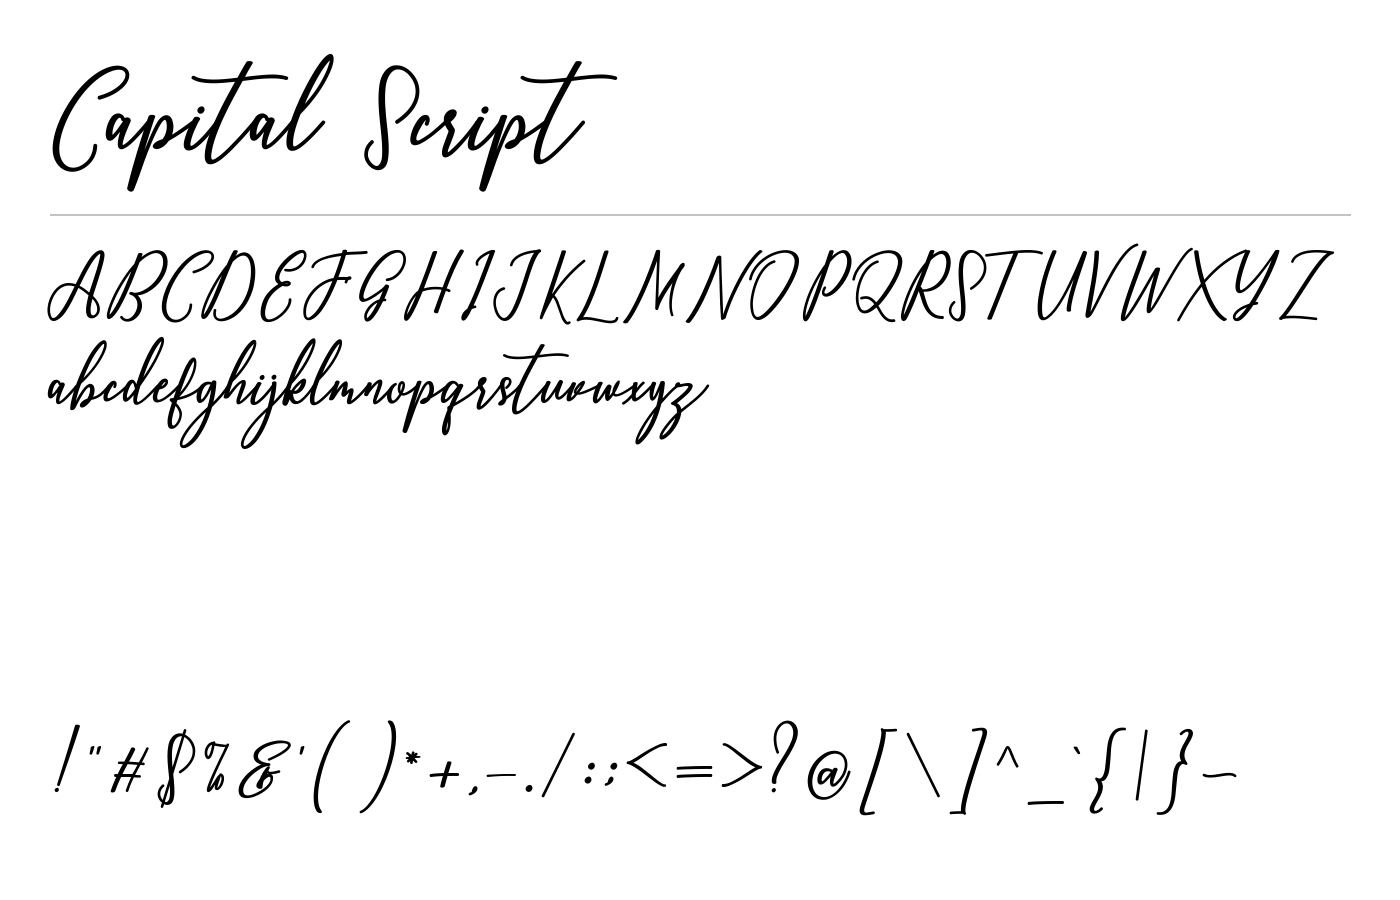 Capital Script
ABCDEFGHIJKLMNOPQRSTUVWXYZ
abcdefghijklmnopqrstuvwxyz
!"#$%&'()*+,-./:;<=>?@[\]^_`{|}~